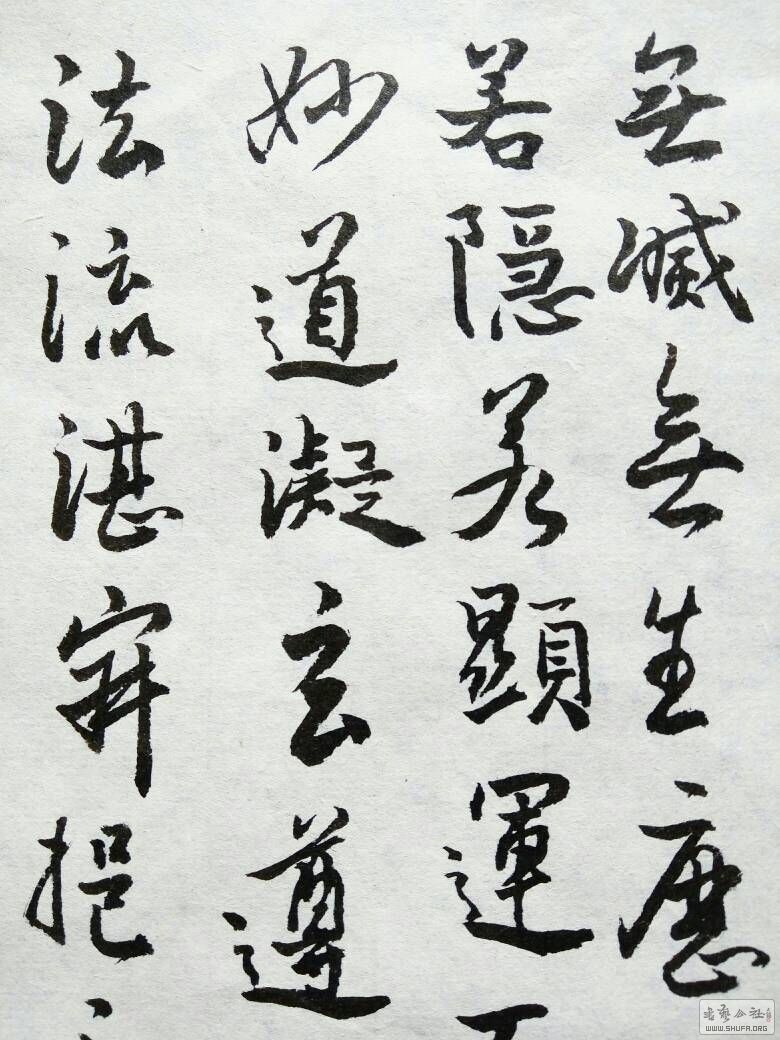 無滅無生歷
若隱若顯運
妙道凝玄遵
法流湛寂挹
書藝公社
WWW.SHUFA.ORG